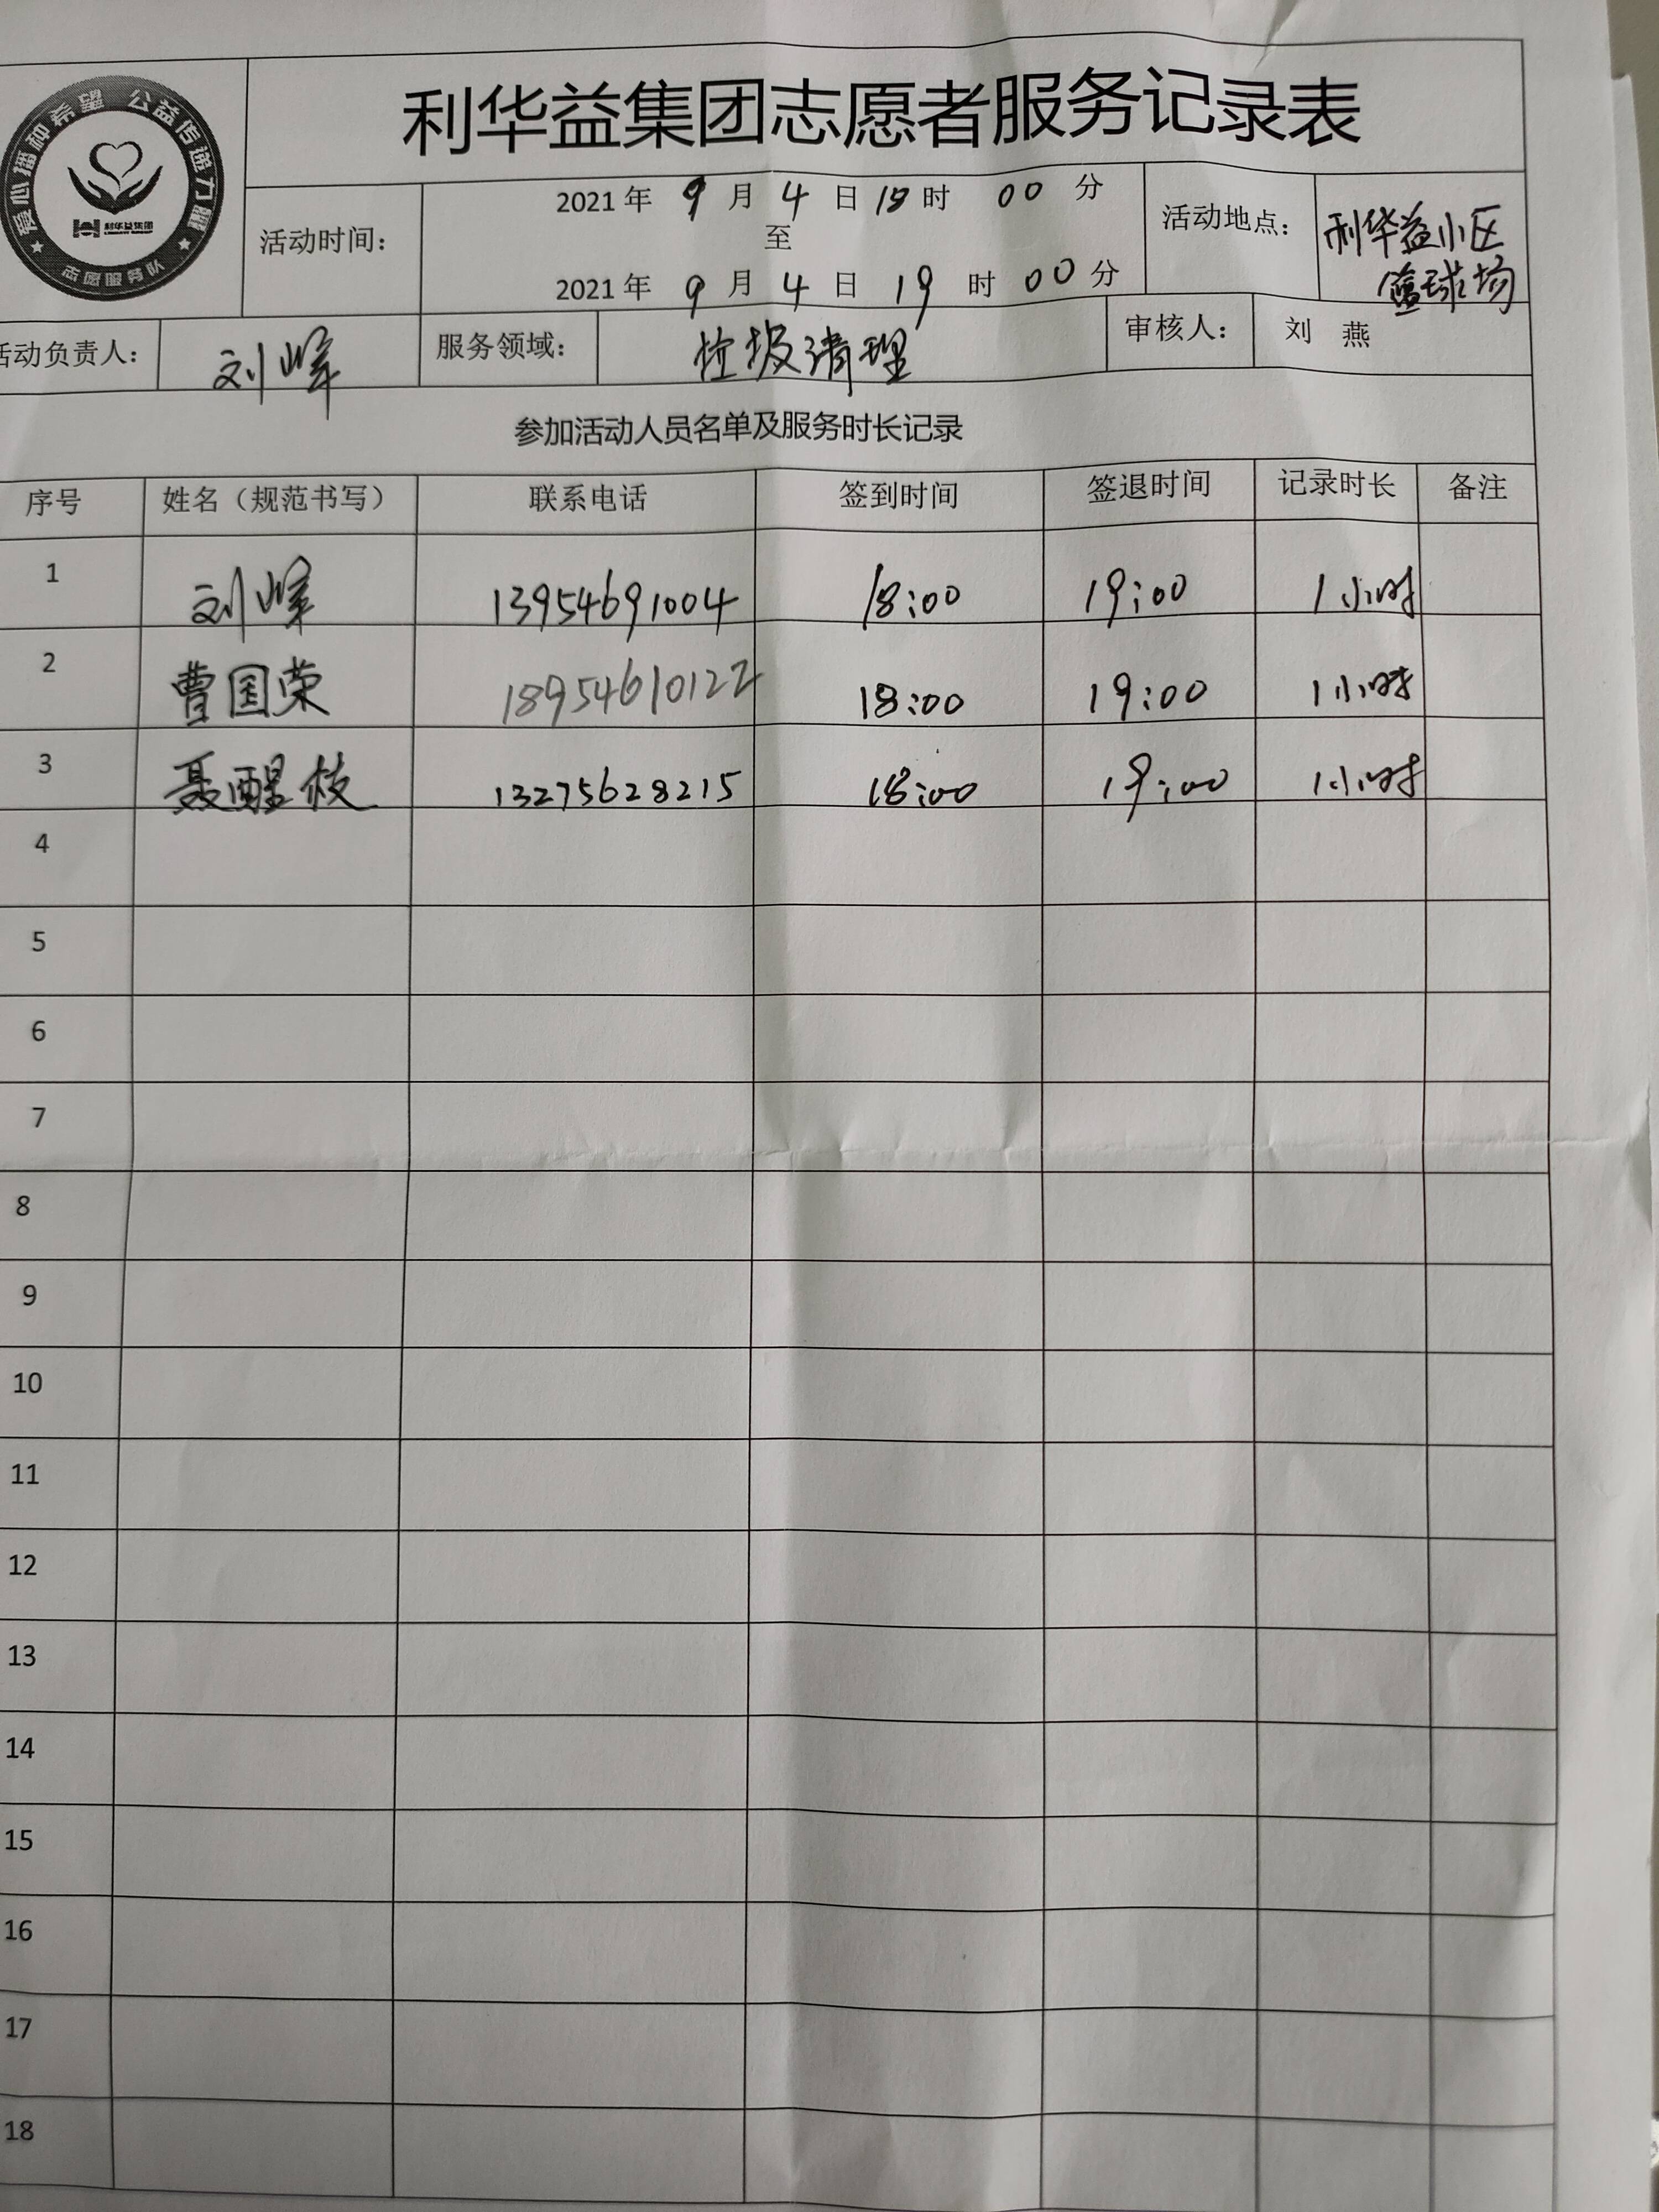 爱心播种希望 公益传递力量
利华益集团
志愿服务队
利华益集团志愿者服务记录表
活动时间：
2021 年 9 月 4 日 18 时 00 分
至
2021 年 9 月 4 日 19 时 00 分
活动地点：
利华益小区
篮球场
活动负责人：
刘峰
服务领域：
垃圾清理
审核人：
刘 燕
参加活动人员名单及服务时长记录
序号 姓名（规范书写） 联系电话 签到时间 签退时间 记录时长 备注
1 刘峰 13954691004 18:00 19:00 1小时
2 曹国荣 18954610122 18:00 19:00 1小时
3 聂醒枝 13275628215 18:00 19:00 1小时
4
5
6
7
8
9
10
11
12
13
14
15
16
17
18